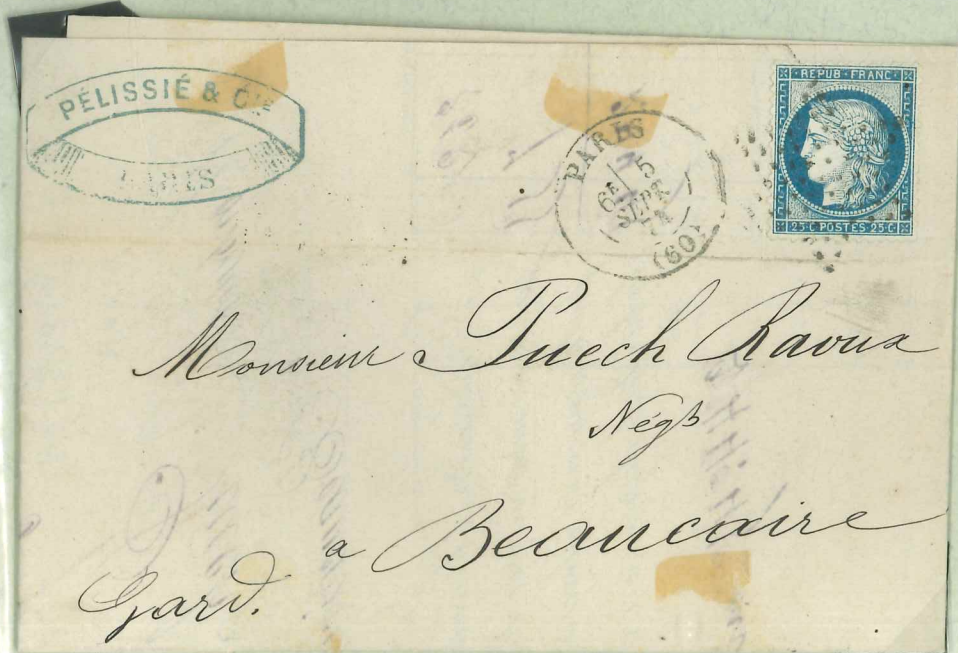 PÉLISSIÉ & Cie
PARIS
PARIS
6E 5
SEPT
(60)
REPUB · FRANC
25·C POSTES 25·C
Monsieur Puech Ravoux
Négt
a Beaucaire
Gard.